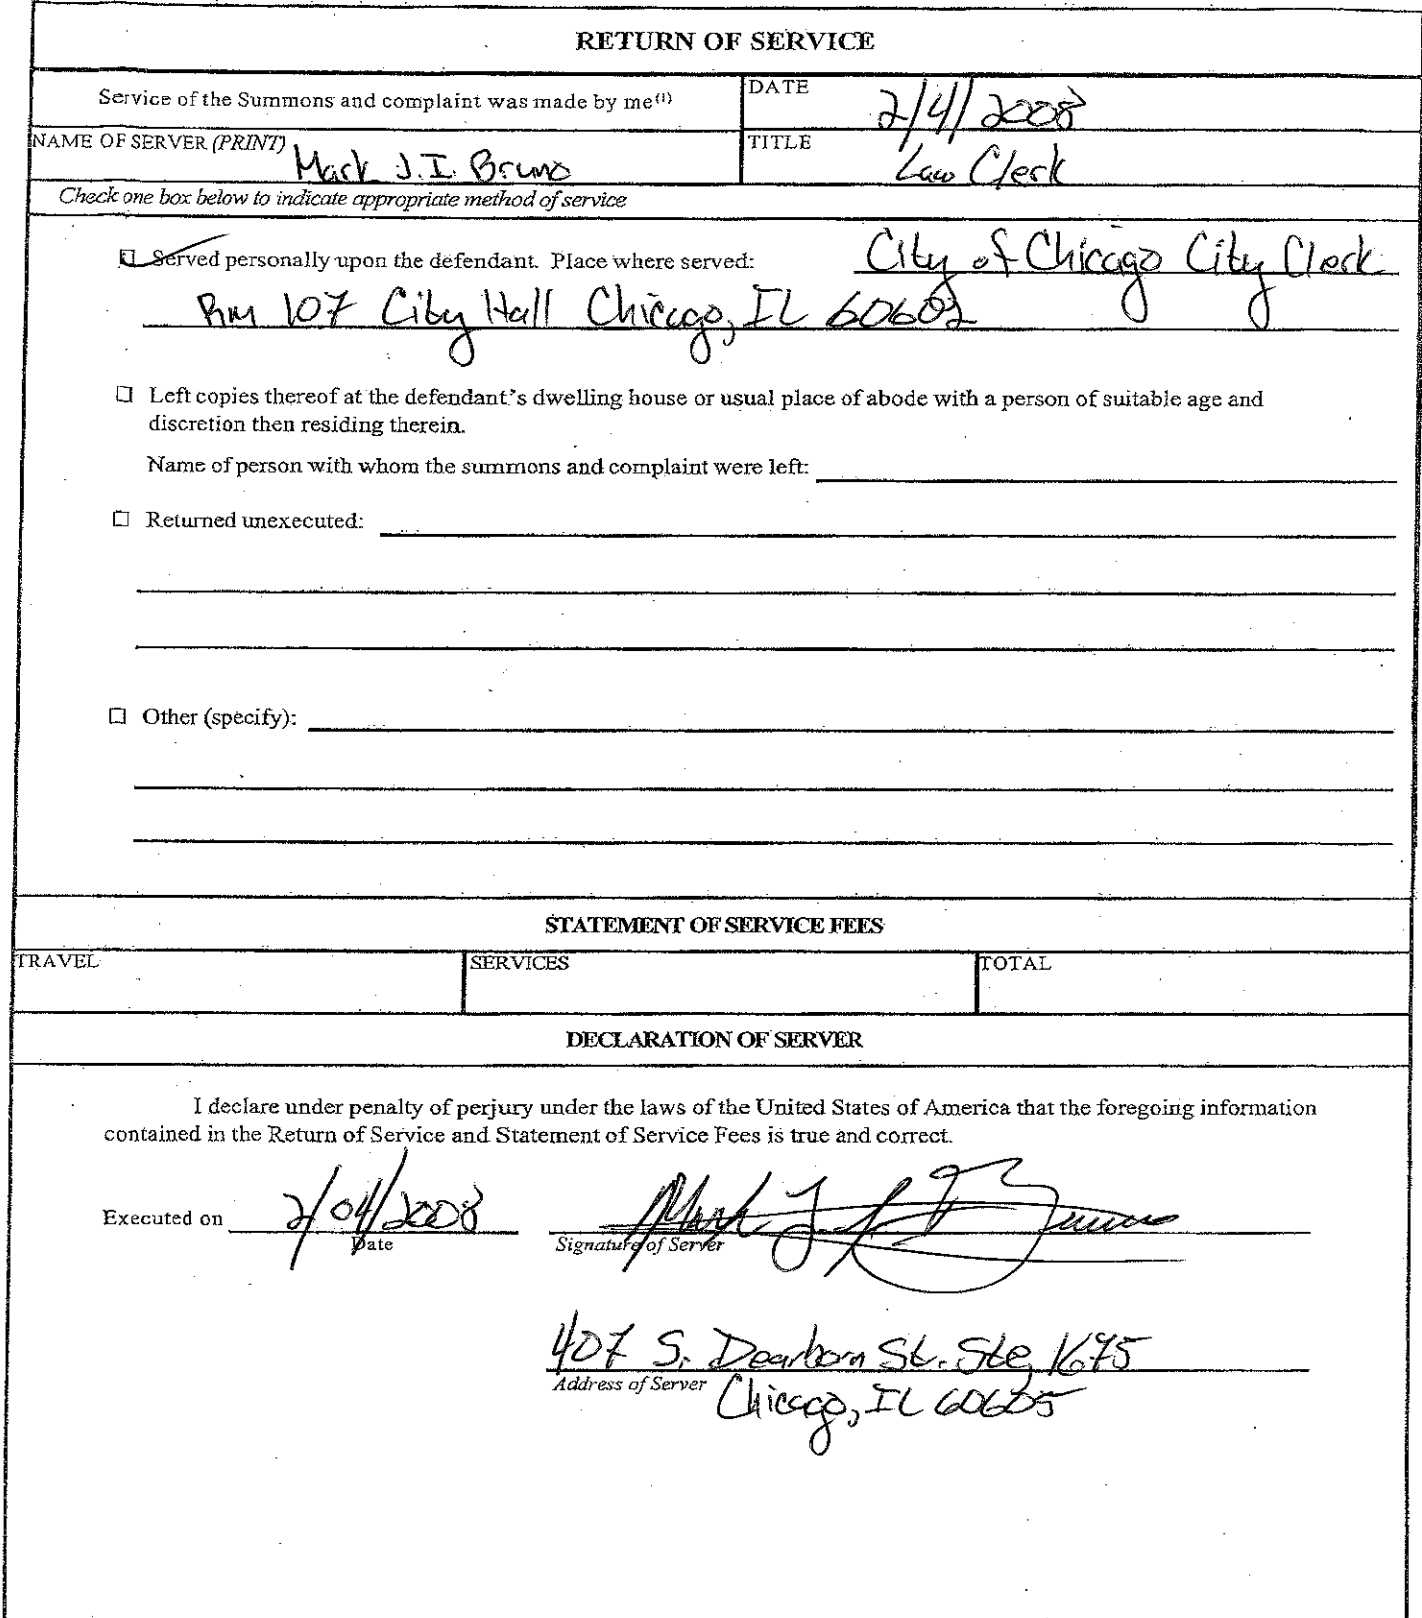 RETURN OF SERVICE
Service of the Summons and complaint was made by me(1)
DATE 2/4/2008
NAME OF SERVER (PRINT) Mark J.I. Bruno
TITLE Law Clerk
Check one box below to indicate appropriate method of service
☑ Served personally upon the defendant. Place where served: City of Chicago City Clerk
Rm 107 City Hall Chicago, IL 60602
☐ Left copies thereof at the defendant's dwelling house or usual place of abode with a person of suitable age and
discretion then residing therein.
Name of person with whom the summons and complaint were left:
☐ Returned unexecuted:
☐ Other (specify):
STATEMENT OF SERVICE FEES
TRAVEL SERVICES TOTAL
DECLARATION OF SERVER
I declare under penalty of perjury under the laws of the United States of America that the foregoing information
contained in the Return of Service and Statement of Service Fees is true and correct.
Executed on 2/04/2008 Mark J. I. Bruno
Date Signature of Server
407 S. Dearborn St. Ste, 1675
Address of Server Chicago, IL 60605